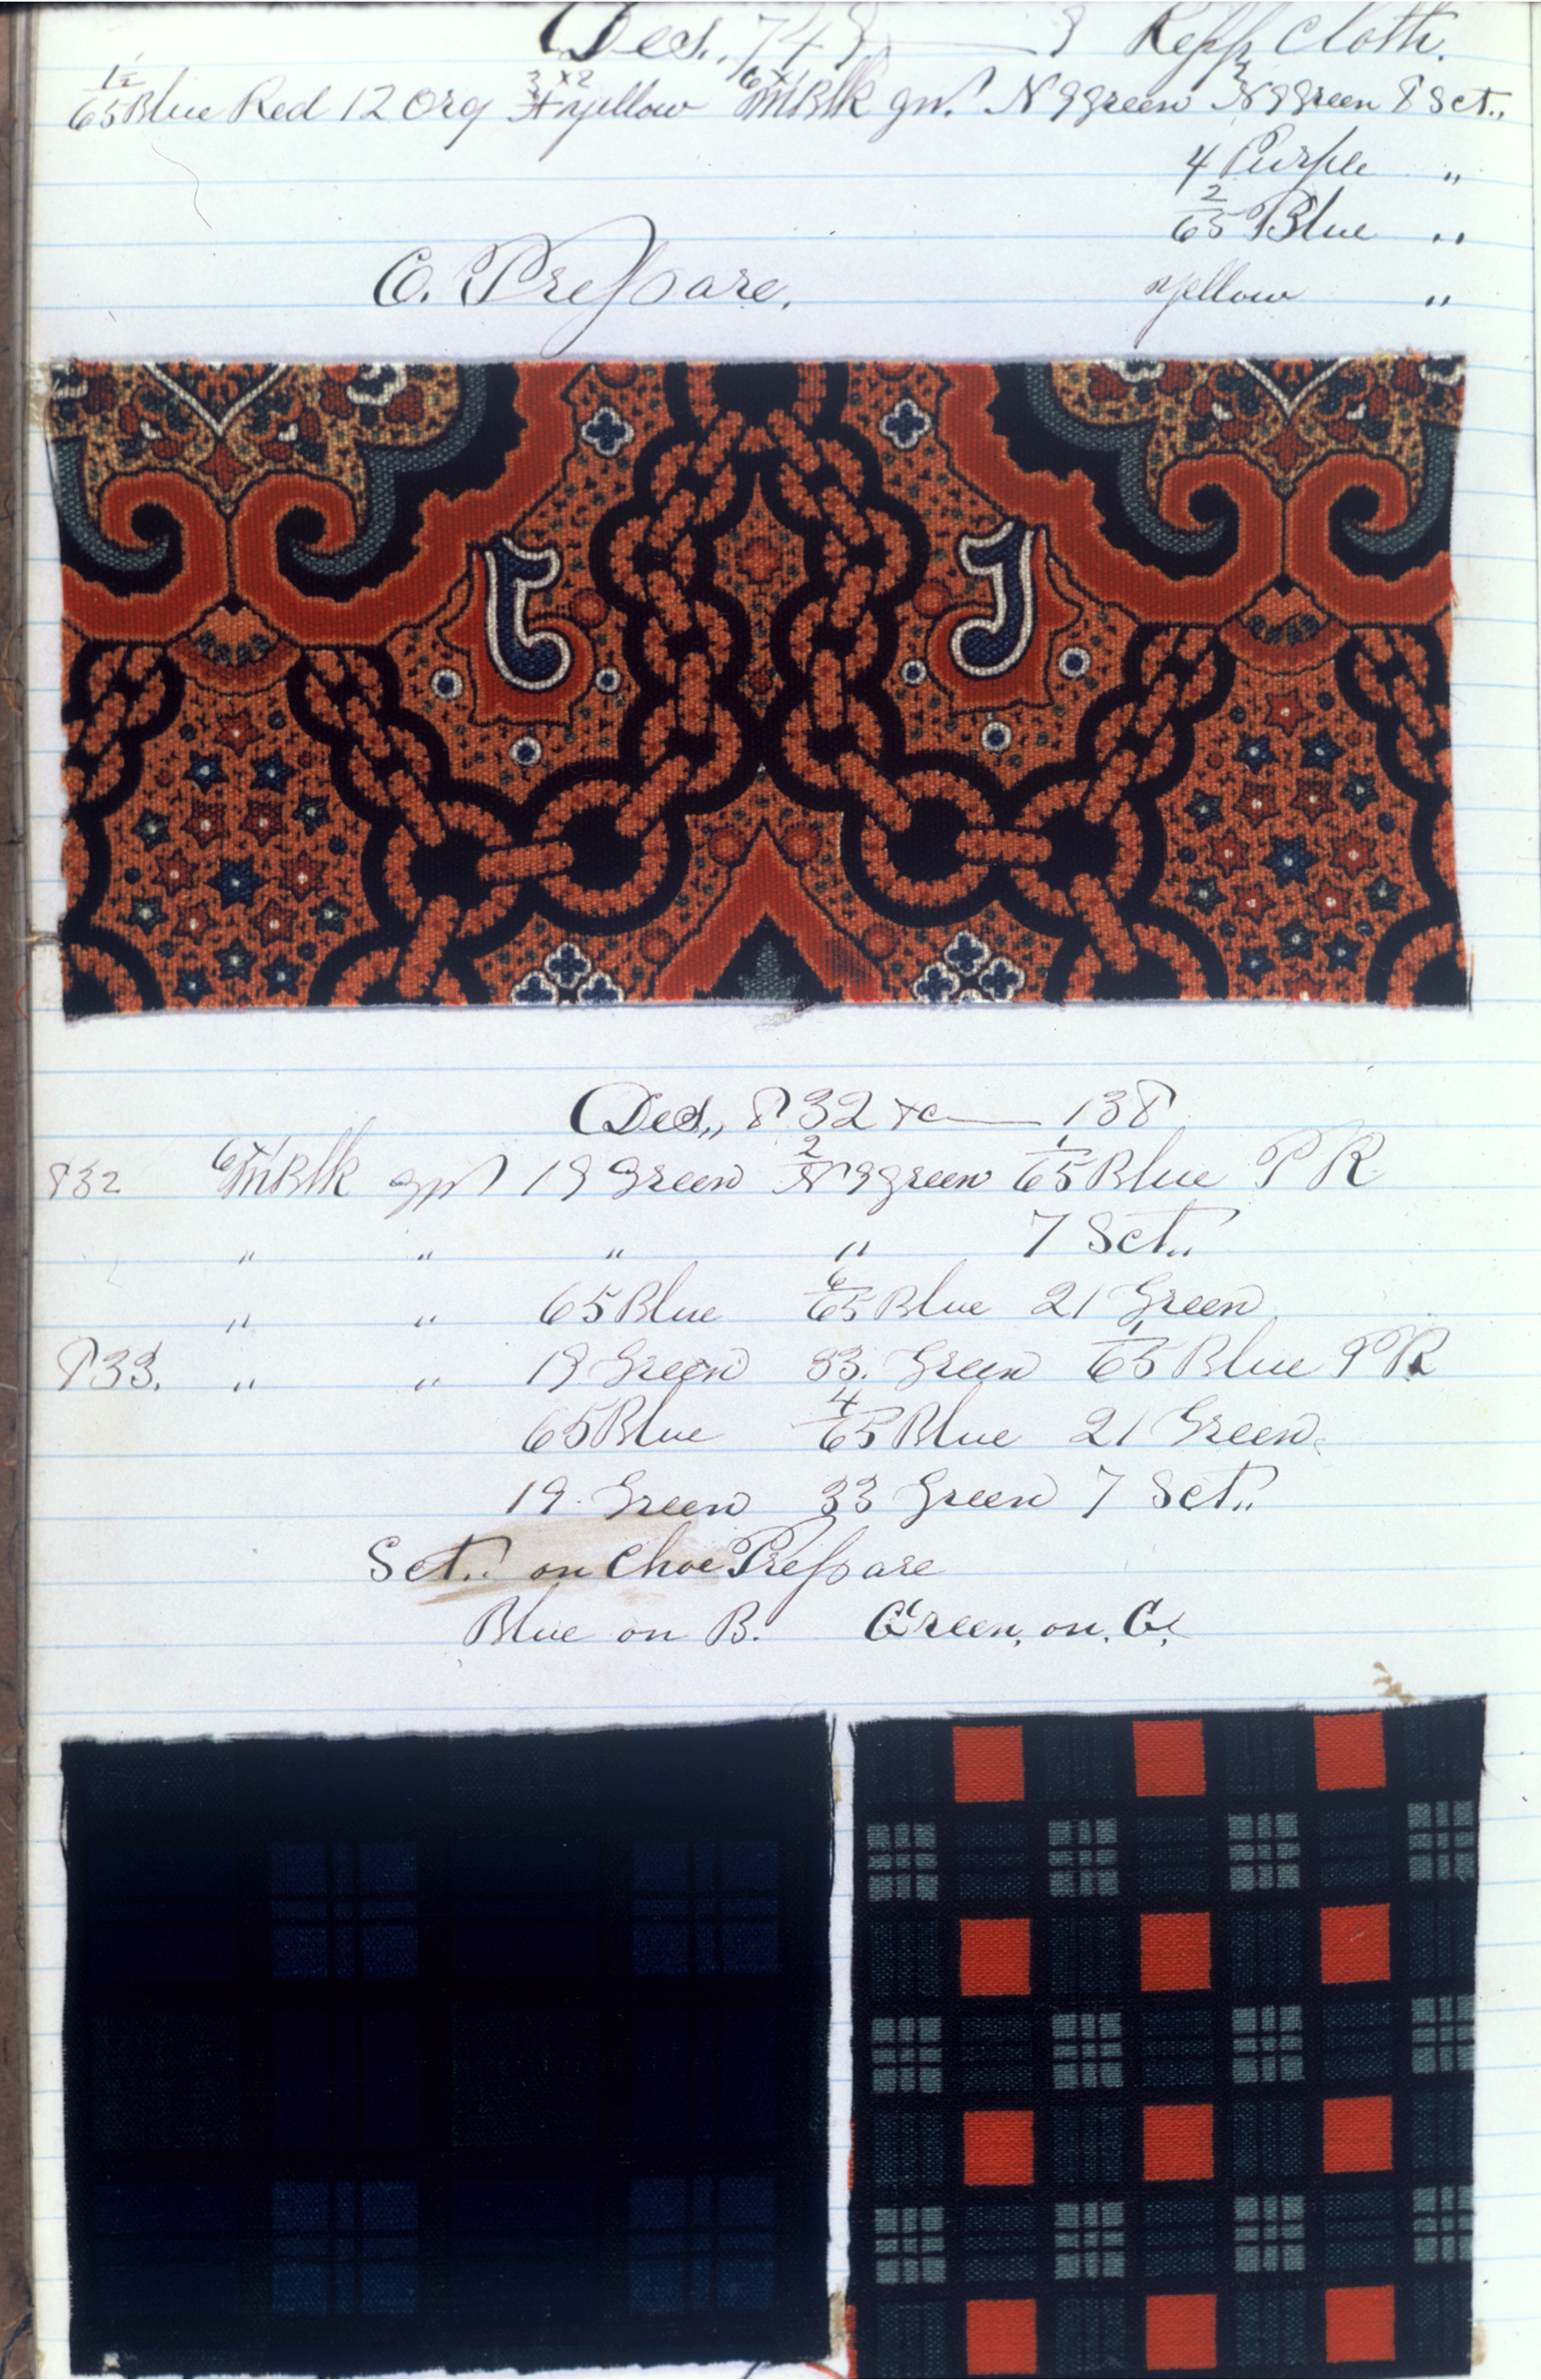 Des., 748 — 9 Repp Cloth.
1½/65 Blue Red 12 Org 3x2/4 yellow 6x1/M Blk gn. N 9 green 2/N 9 green 8 Sct.,
4 Purple "
2/65 Blue "
yellow "
C. Prepare.
Des,, 832 xc — 138
832 6x1/M Blk gn 19 Green 2/N 9 green 1/65 Blue PR
" " " " 7 Sct..
" " 65 Blue 6/65 Blue 21 Green
833. " " 19 Green 33. Green 1/65 Blue PR
65 Blue 4/65 Blue 21 Green.
19. Green 33 Green 7 Sct..
Sct.. on Choc Prepare
Blue on B. Green, on. C.